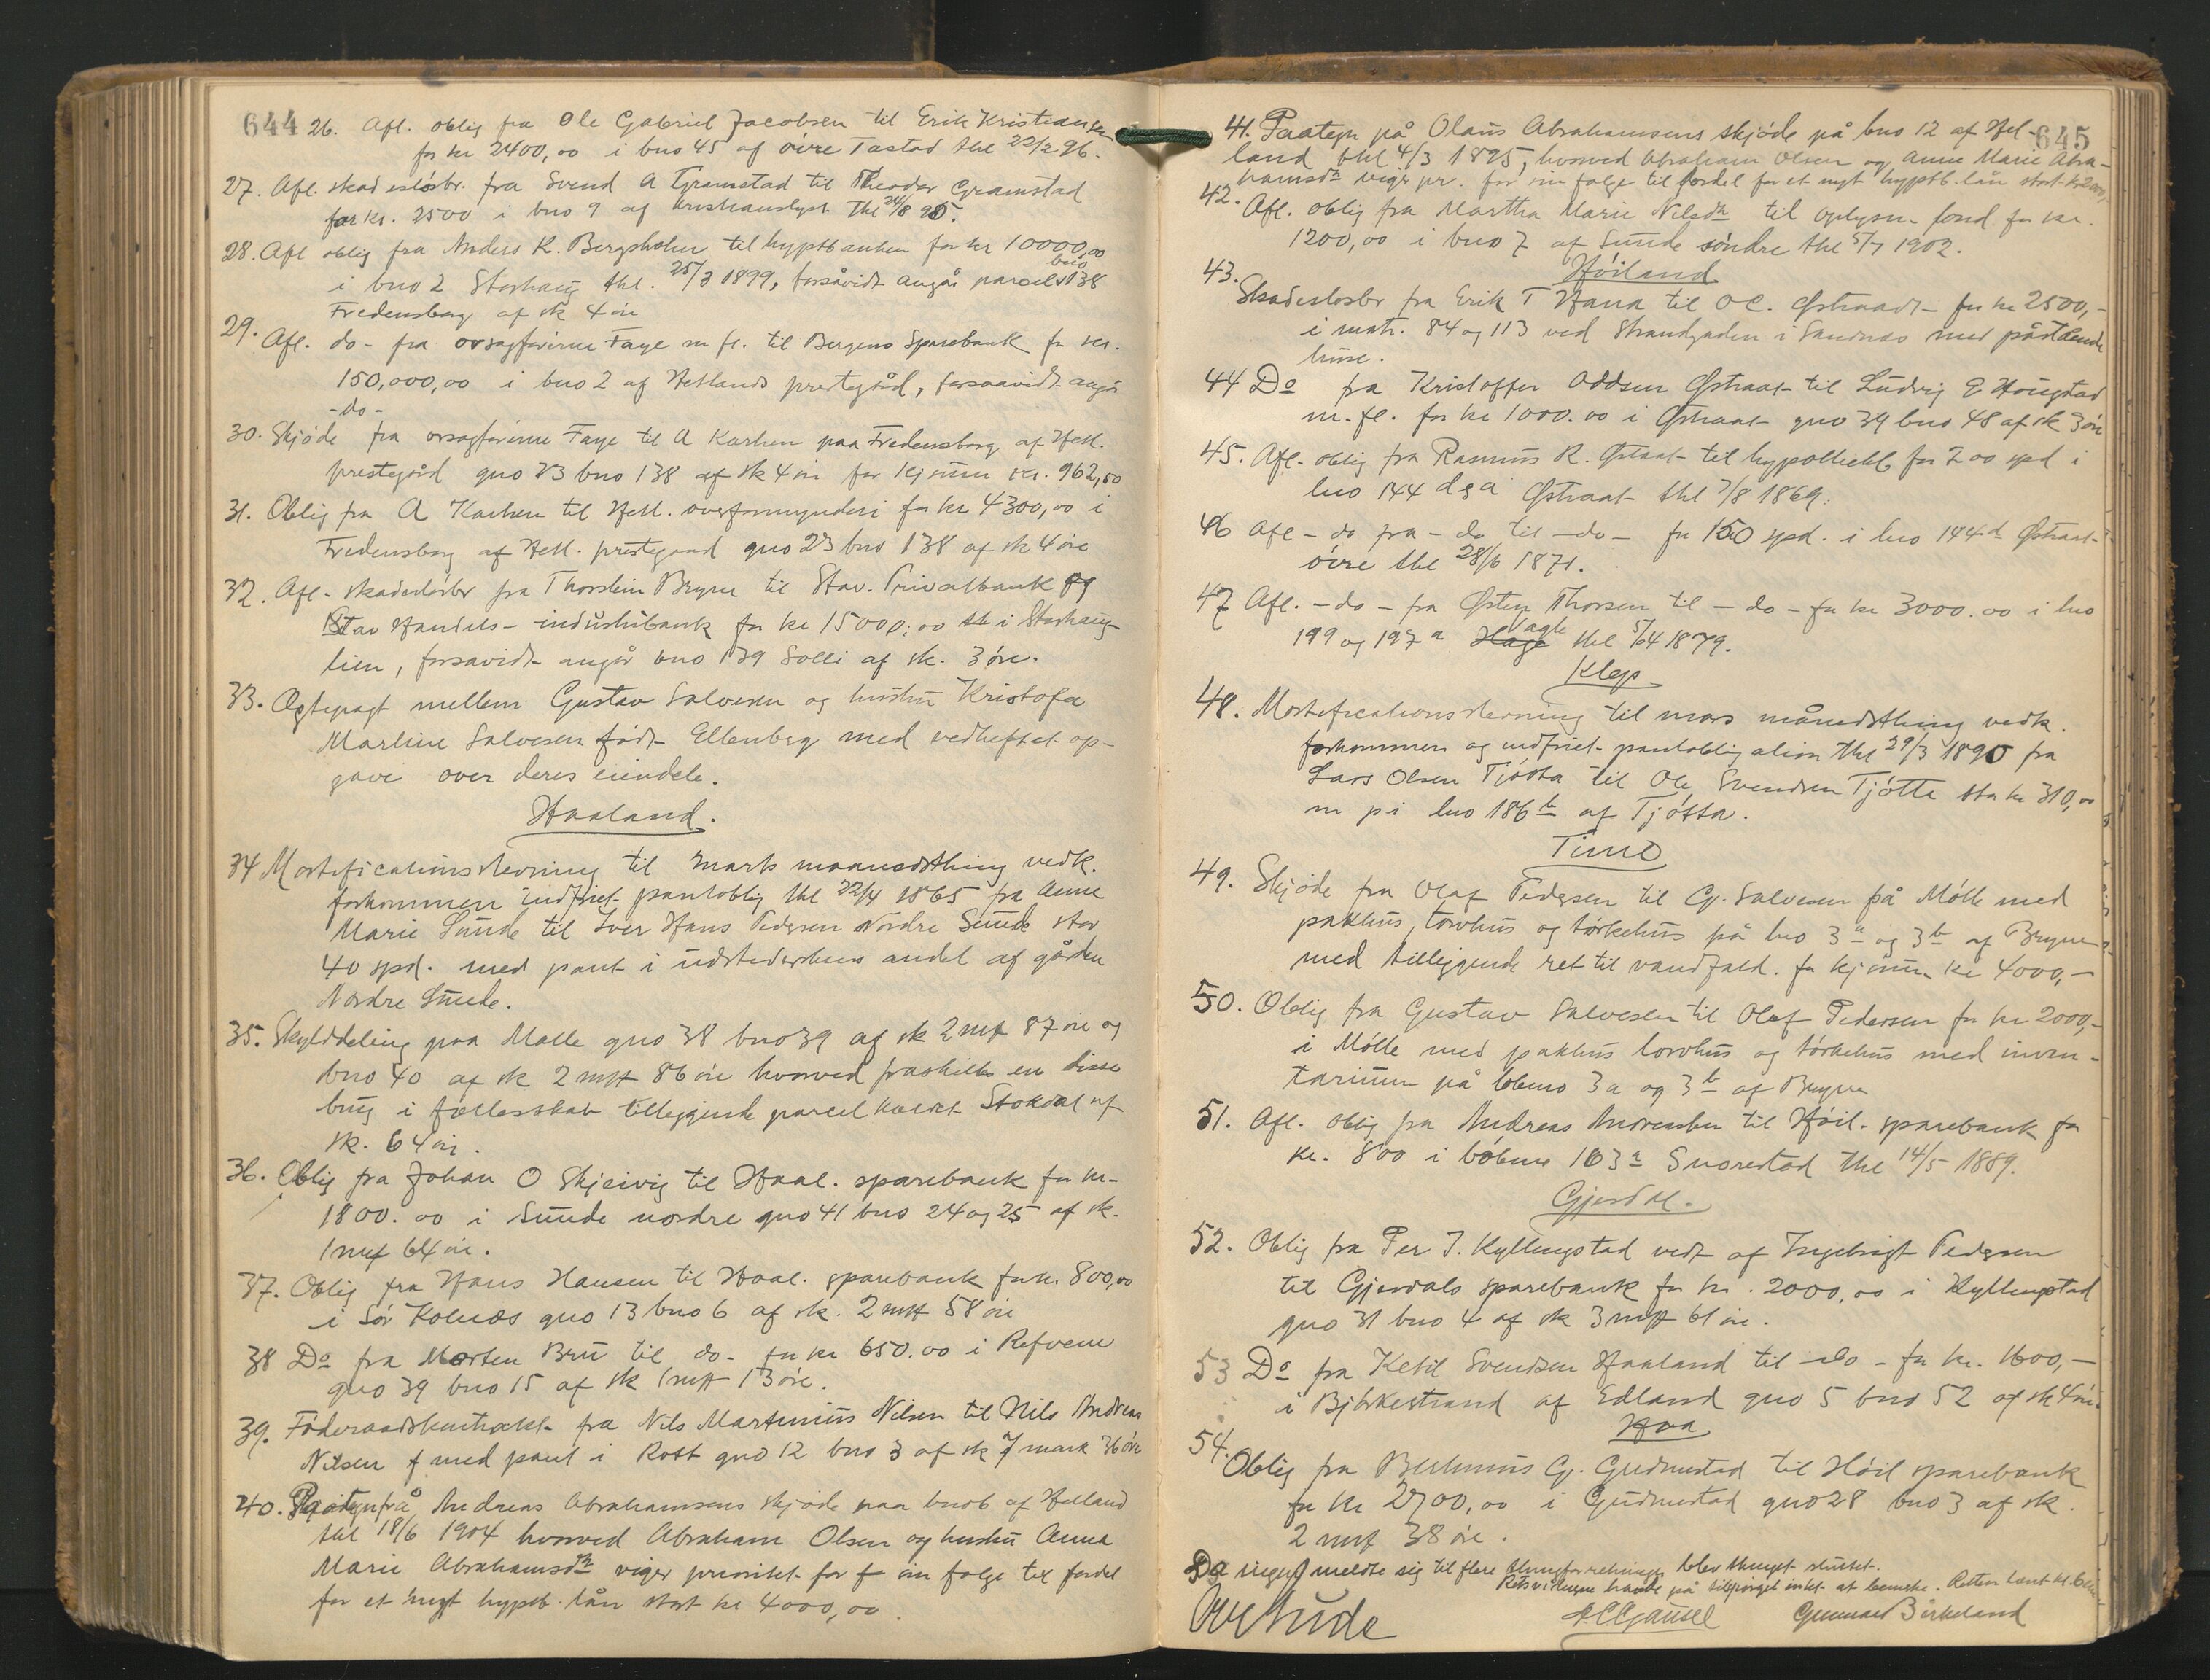 644
26. Afl. oblig fra Ole Gabriel Jacobsen til Erik Kristiansen
for kr 2400,00 i bno 45 af övre Tastad thl 22/2 96.
27. Afl. skadeslösbr. fra Svend A Gramstad til Theodor Gramstad
for kr. 2500 i bno 9 af Kristianslyst thl 24/8 95.
28. Afl oblig fra Anders K. Bergsholm til hyptbanken for kr 10000,00
i bno 2 Storhaug thl. 25/3 1899, forsåvidt angår parcel bno 138
Fredensborg af sk 4 öre
29. Afl. do- fra ovsagförerne Faye m fl. til Bergens Sparebank for kr.
150,000,00 i bno 2 af Hetlands prestegård, forsaavidt angår
-do-
30. Skjöde fra ovsagförerne Faye til A Karlsen paa Fredensborg af Hetl.
prestegård gno 23 bno 138 af sk 4 öre for kjösum kr. 962,50
31. Oblig fra A Karlsen til Hetl. overformynderi for kr 4300,00 i
Fredensborg af Hetl. prestegaard gno 23 bno 138 af sk 4 öre
32. Afl. skadeslösbr fra Thorstein Bryne til Stav. Privatbank og
Stav Handels- industribank for kr 15000,00 i Storhaug-
lien, forsavidt angår bno 139 Solli af sk. 3 öre.
33. Ægtepagt mellem Gustav Salvesen og hustru Kristofa
Marline Salvesen födt Ellenberg med vedheftet op-
gave over deres eiendele.
Haaland.
34 Mortificationsstevning til marts maanedsthing vedk.
forkommen indfriet pantoblig thl 22/4 1865 fra Anne
Marie Sunde til Iver Hans Pedersen Nordre Sunde stor
40 spd. med pant i udstederskens andel af gården
Nordre Sunde.
35. Skylddeling paa Malle gno 38 bno 39 af sk 2 mk 87 öre og
bno 40 af sk 2 mk 86 öre hvorved fraskilles en disse
brug i fællesskab tilleggende parcel kaldet Stokdal af
sk. 64 öre.
36. Oblig fra Johan O Skjeivig til Haal. sparebank for kr-
1800.00 i Sunde nordre gno 41 bno 24 og 25 af sk.
1 mk 64 öre.
37. Oblig fra Hans Hansen til Haal. sparebank for kr. 800,00
i Sör Kolnæs gno 13 bno 6 af sk. 2 mk 58 öre
38 Do fra Morten Bru til do- for kr 650.00 i Refvem
gno 39 bno 15 af sk 1 mk 13 öre.
39. Föderaadskontrakt fra Nils Martinius Nilsen til Nils Andreas
Nilsen med pant i Rott gno 12 bno 3 af sk 7 mark 36 öre
40. Paategn på Andreas Abrahamsens skjöde paa bno 6 af Helland
thl 18/6 1904 hvorved Abraham Olsen og hustru Anna
Marie Abrahamsdtr viger prioritet for sin folge til fordel
for et nyt hyptb. lån stort kr 4000,00.
645
41. Paategn på Olaus Abrahamsens skjöde på bno 12 af Hel-
land thl 4/3 1895, hvorved Abraham Olsen og Anne Marie Abra-
hamsdtr viger pr. for sin folge til fordel for et nyt hyptb. lån stort kr 2000,-
42. Afl. oblig fra Martha Marie Nilsdtr til oplysn. fond for kr.
1200,00 i bno 7 af Sunde söndre thl 5/7 1902.
Höiland
43. Skadeslosbr fra Erik T Hana til O C. Østraadt for kr 2500,-
i matr. 84 og 113 ved Strandgaden i Sandnæs med påstående
huse.
44 Do fra Kristoffer Oddsen Østraat til Ludvig E Haugstad
m. fl. for kr 1000.00 i Østraat gno 39 bno 48 af sk 3 öre
45. Afl. oblig fra Rasmus R. Østraat til hypothekb for 200 spd i
lno 144 d & a Østraat thl 7/8 1869.
46 Afl - do fra - do til - do - for 150 spd. i lno 144 d Østraat
övre thl 28/6 1871.
47 Afl. - do - fra Østen Thorsen til - do - for kr 3000.00 i lno
199 og 197 a Vagle thl 5/4 1879.
Klep
48. Mortificationsstevning til mars månedsthing vedk.
forkommen og indfriet pantobligation thl 29/3 1890 fra
Lars Olsen Tjötta til Ole Svendsen Tjötte stor kr 310,00
m p i lno 186 b af Tjötta.
Time
49. Skjöde fra Olaf Pedersen til G. Salvesen på Mölle med
pakhus, torvhus og törkehus på lno 3 a og 3 b af Bryne
med tilliggende ret til vandfald. for kjösum kr 4000,-
50. Oblig fra Gustav Salvesen til Olaf Pedersen for kr 2000,-
i Mölle med pakhus torvhus og törkehus med inven-
tarium på löbeno 3 a og 3 b af Bryne
51. Afl. oblig fra Andreas Andreassen til Höil. sparebank for
kr. 800 i löbeno 163 a Snorestad thl 14/5 1889.
Gjesdal.
52. Oblig fra Per J. Kyllingstad vedt af Ingebrigt Pedersen
til Gjesdals sparebank for kr. 2000,00 i Kyllingstad
gno 31 bno 4 af sk 3 mk 61 öre.
53 Do fra Ketil Svendsen Haaland til - do - for kr. 1600,-
i Björkestrand af Edland gno 5 bno 52 af sk 4 öre.
Haa
54. Oblig fra Berthinius G. Gudmestad til Höil sparebank
for kr 2700,00 i Gudmestad gno 28 bno 3 af sk.
2 mk 38 öre.
Da ingen meldte sig til flere thingforretninger blev thinget sluttet.
Retsvidnerne havde på tilspörgsel intet at bemerke. Retten hævt kl.
Gunnar Birkeland